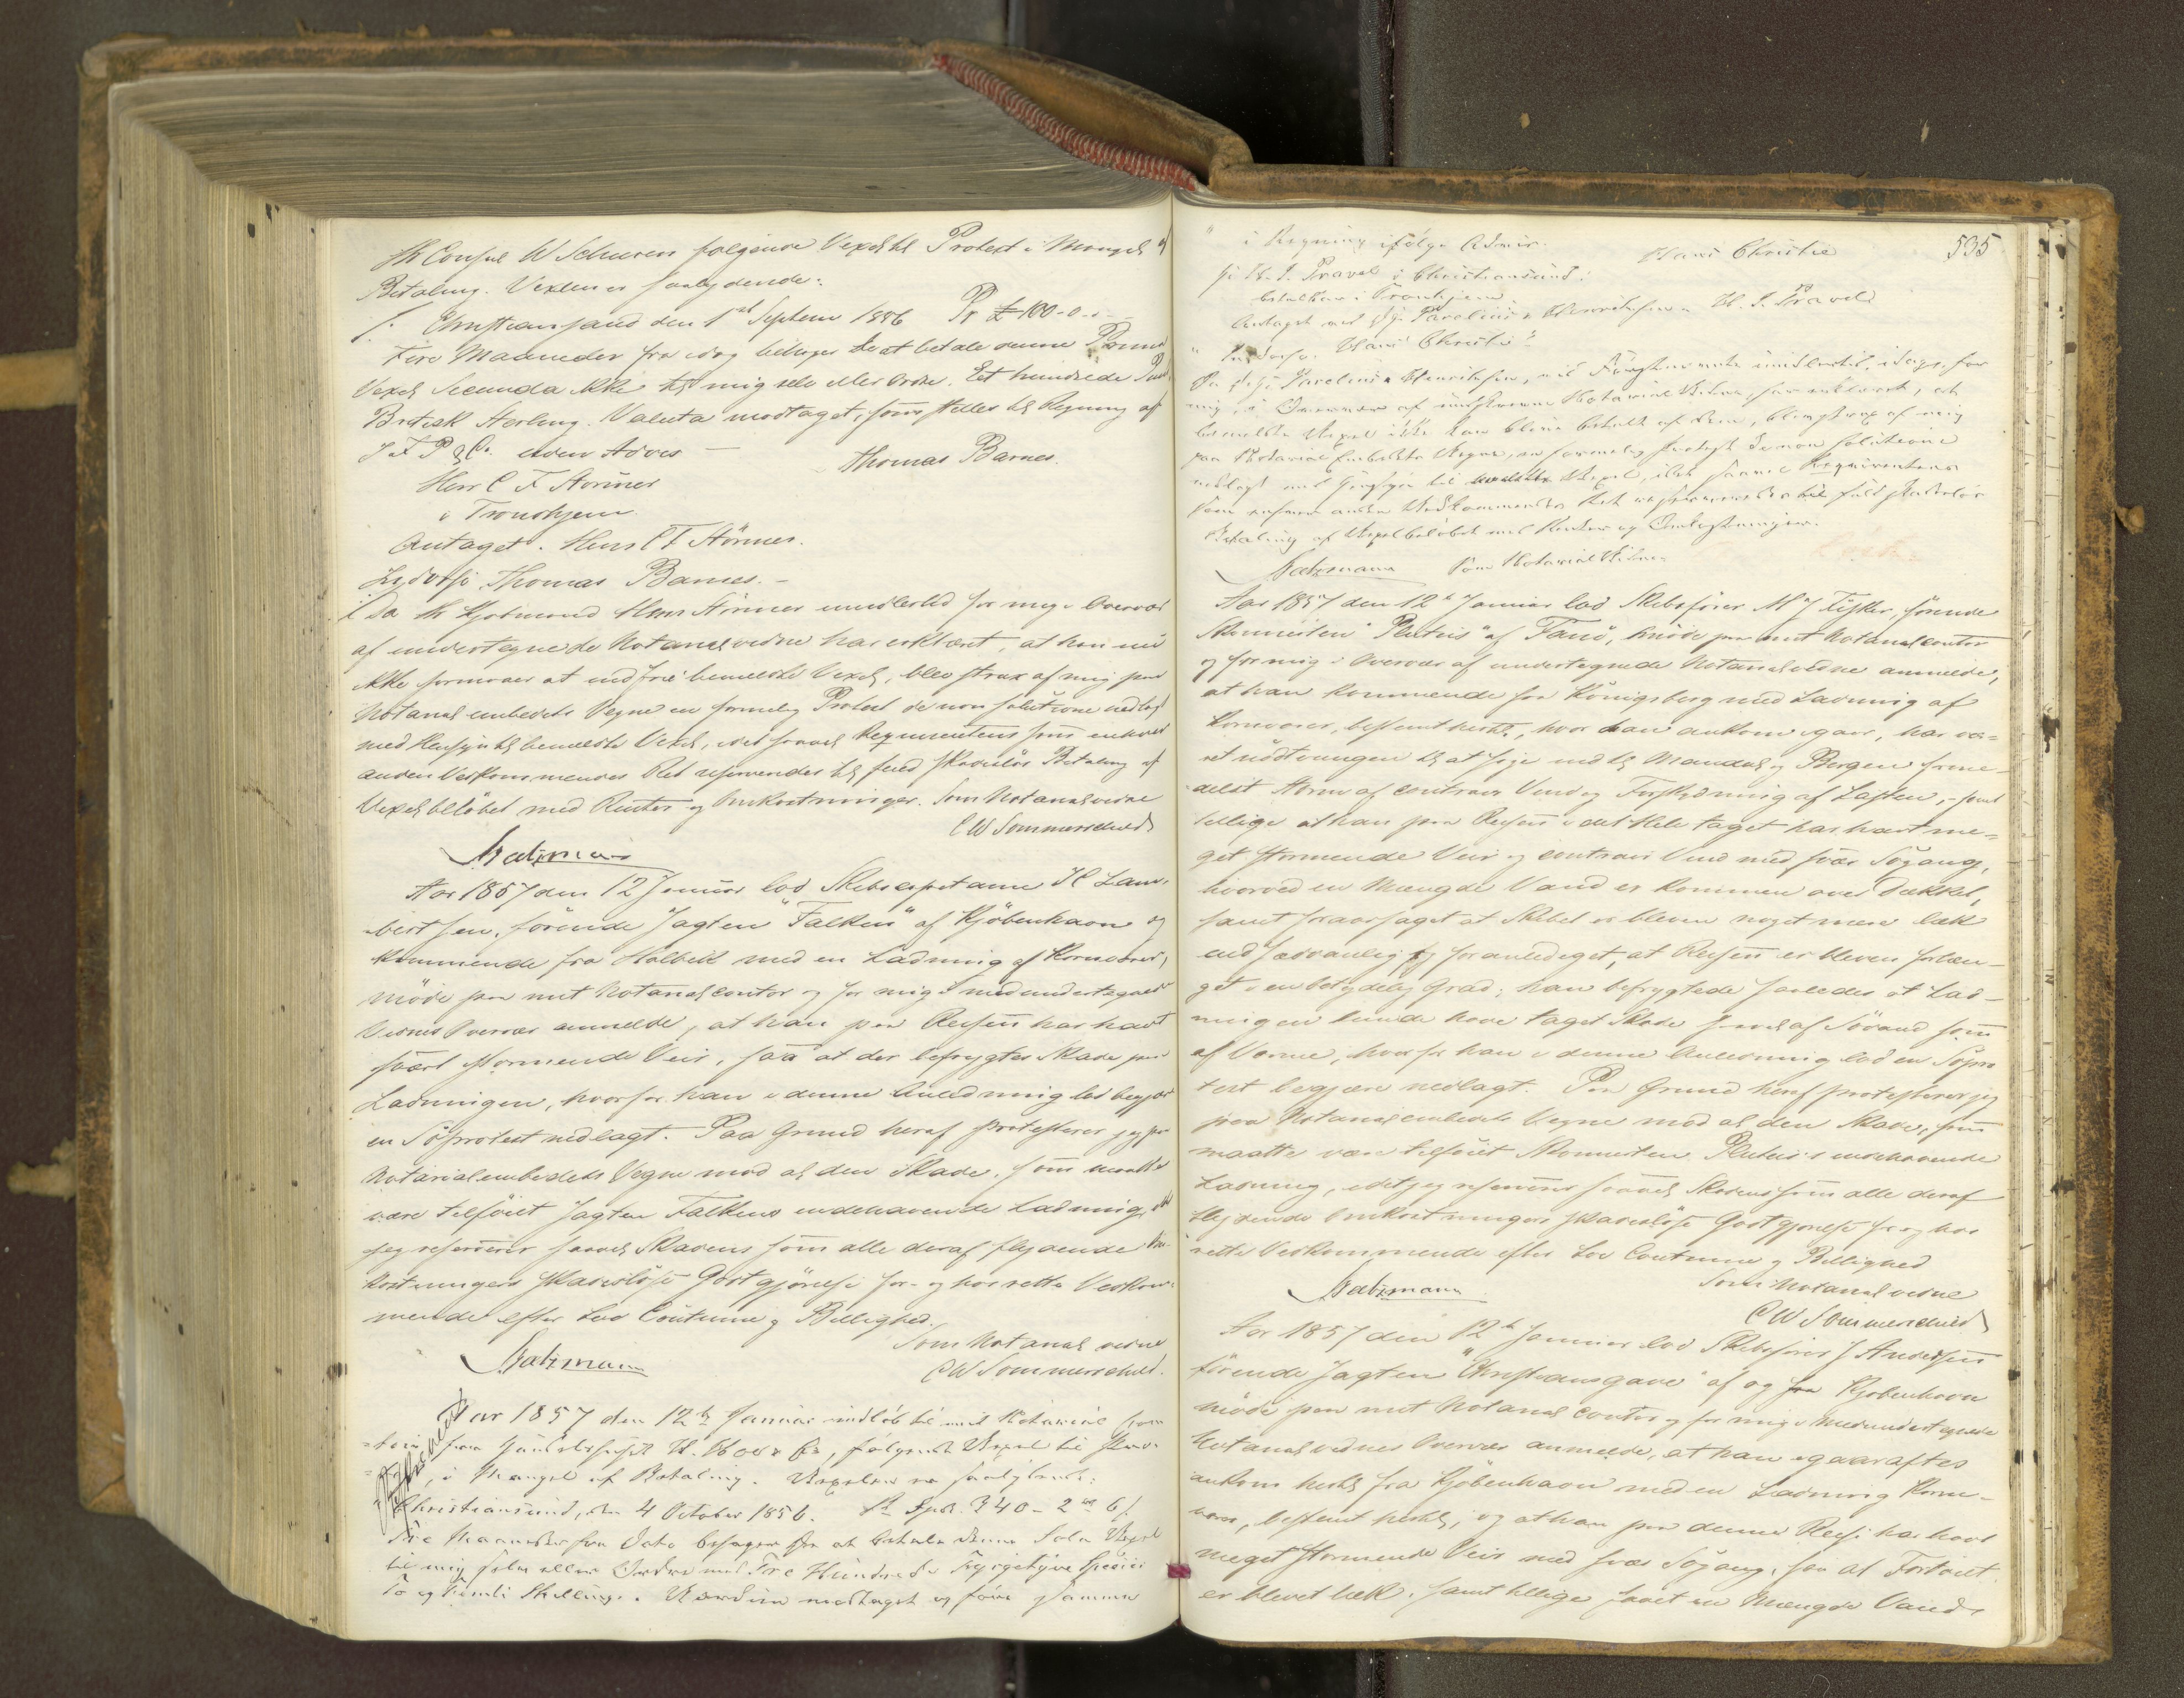 Hr Consul W Schuren følgende Vexel til Protest i Mangel af
Betaling. Vexlen er saalydende:
Christiansand den 1st Septem 1856 Pr £ 100-0-
Fire Maaneder fra idag behager De at betale denne Prima
Vexel Secunda ikke til mig selv eller Ordre. Et hundrede Pund
Britisk Sterling. Valuta modtaget, som stilles til Regning af
uden Advis
Thomas Barnes.
Herr C F Störmer
i Trondhjem.
Antaget. Hans C F Störmer.
Indorso Thomas Barnes.
Da Hr Kjøbmand Störmer imidlertid for mig i Overvær
af undertegnede Notarialvidne har erklæret, at han nu
ikke formaaer at indfrie bemeldte Vexel, blev strax af mig paa
Notarialembedets Vegne en formelig Protest de non solutione nedlagt
med Hensyn til bemeldte Vexel, idet saavel Requirentens som enhver
anden Vedkommendes Ret reserveres til fuld skadeslös Betaling af
Vexelbelöbet med Renter og Omkostninger. Som Notarialvidne
C W Sommerschield
Matzmann
Aar 1857 den 12 Januar lod Skibscapitaine H C Lam-
bertsen, förende Jagten "Falken" af Kjöbenhavn og
kommende fra Holbek med en Ladning af Kornvarer,
möde paa mit Notarialcontor og for mig i medundertegnede
Vidnes Overvær anmelde, at han paa Reisen har havt
svært stormende Veir, saa at der befrygtes Skade paa
Ladningen, hvorfor han i denne Anledning lod begjære
en Söprotest nedlagt. Paa Grund heraf protesterer jeg paa
Notarialembedets Vegne mod al den Skade, som maatte
være tilföiet Jagten Falkens indehavende Ladning, idet
jeg reserverer saavel Skadens som alle deraf flydende Om-
kostningers skadeslöse Godtgjörelse for- og hos rette Vedkom-
mende efter Lov Coutume og Billighed.
Som Notarial vidne
C W Sommerschield.
Matzmann
Aar 1857 den 12te Januar indlöb til mit Notarial Con-
toir fra Handelshuset H. & Co, følgende Vexel til Pro-
i Mangel af Betaling. Vexelen er saalydende:
Christiansund, den 4 October 1856. Pr Spd. 340 - 2 6 s
Tre Maaneder fra Dato behager De at betale denne Sola Vexel
til mig selv eller Ordre med Tre Hundrede Fyrgetyve Species
To og Skilling. Værdien modtaget og føre samme
535
" i Regning ifølge Advis.
Hans Christie
H. J. Pravel i Christiansund.
betalbar i Trondhjem
Antaget H. J. Pravel
" Indorso. Hans Christie"
Da imidlertid, idag for
mig, i Overvær af undertegnede Notarial Vidne, har erklæret, at
bemeldte Vexel ikke kan blive betalt af dem, blev strax af mig
paa Notarial Embedets Vegne, en formelig Protest de non solutione
nedlagt med Hensyn til bemeldte Vexel, idet saavel Requirentens
som enhver anden Vedkommendes Ret reserveres til fuld skadeslös
Betaling af Vexelbelöbet med Renter og Omkostninger.
Matzmann Som Notarial Vidne
Aar 1857 den 12te Januar lod Skibsförer M J Fisker, förende
Skonnerten "Plutus" af Fanö, möde paa mit Notarialcontor
og for mig i Overvær af undertegnede Notarialvidne anmelde,
at han kommende fra Königsberg med Ladning af
Kornvarer, bestemt hertil, hvor han ankom igaar, har væ-
ret nödtvungen til at søge ind til Mandal og Bergen forme-
delst Storm og contrair Vind og Forskydning af Lasten, samt
tillige at han paa Reisen i det Hele taget har havt me-
get stormende Veir og contrair Vind med svær Sögang,
hvorved en Mængde Vand er kommen over Dækket,
samt foraarsaget at Skibet er bleven noget mere læk
end sædvanlig og foranlediget, at Reisen er bleven forlæn-
get i en betydelig Grad; han befrygtede saaledes at Lad-
ningen kunde have taget Skade saavel af Sövand som
af Varme, hvorfor han i denne Anledning lod en Söpro
test begjære nedlagt. Paa Grund heraf protesterer jeg
paa Notarialembedets Vegne mod al den Skade, som
maatte være tilföiet Skonnerten Plutus's indehavende
Ladning, idet jeg reserverer saavel Skadens som alle deraf
flydende Omkostningers skadeslöse Godtgjörelse for og hos
rette Vedkommende efter Lov Coutume og Billighed
Som Notarialvidne
Matzmann
C W Sommerschield
Aar 1857 den 12te Januar lod Skibsförer J Andersen
förende Jagten "Christiansgave" af og fra Kjöbenhavn
möde paa mit Notarial Contor og for mig i medundertegnede
Notarialvidnes Overvær anmelde, at han igaaraftes
ankom hertil fra Kjöbenhavn med en Ladning Korn-
varer, bestemt hertil, og at han paa denne Reise har havt
meget stormende Veir med svær Sögang, saa at Fartöiet
er blevet læk, samt tillige faaet en Mængde Vand